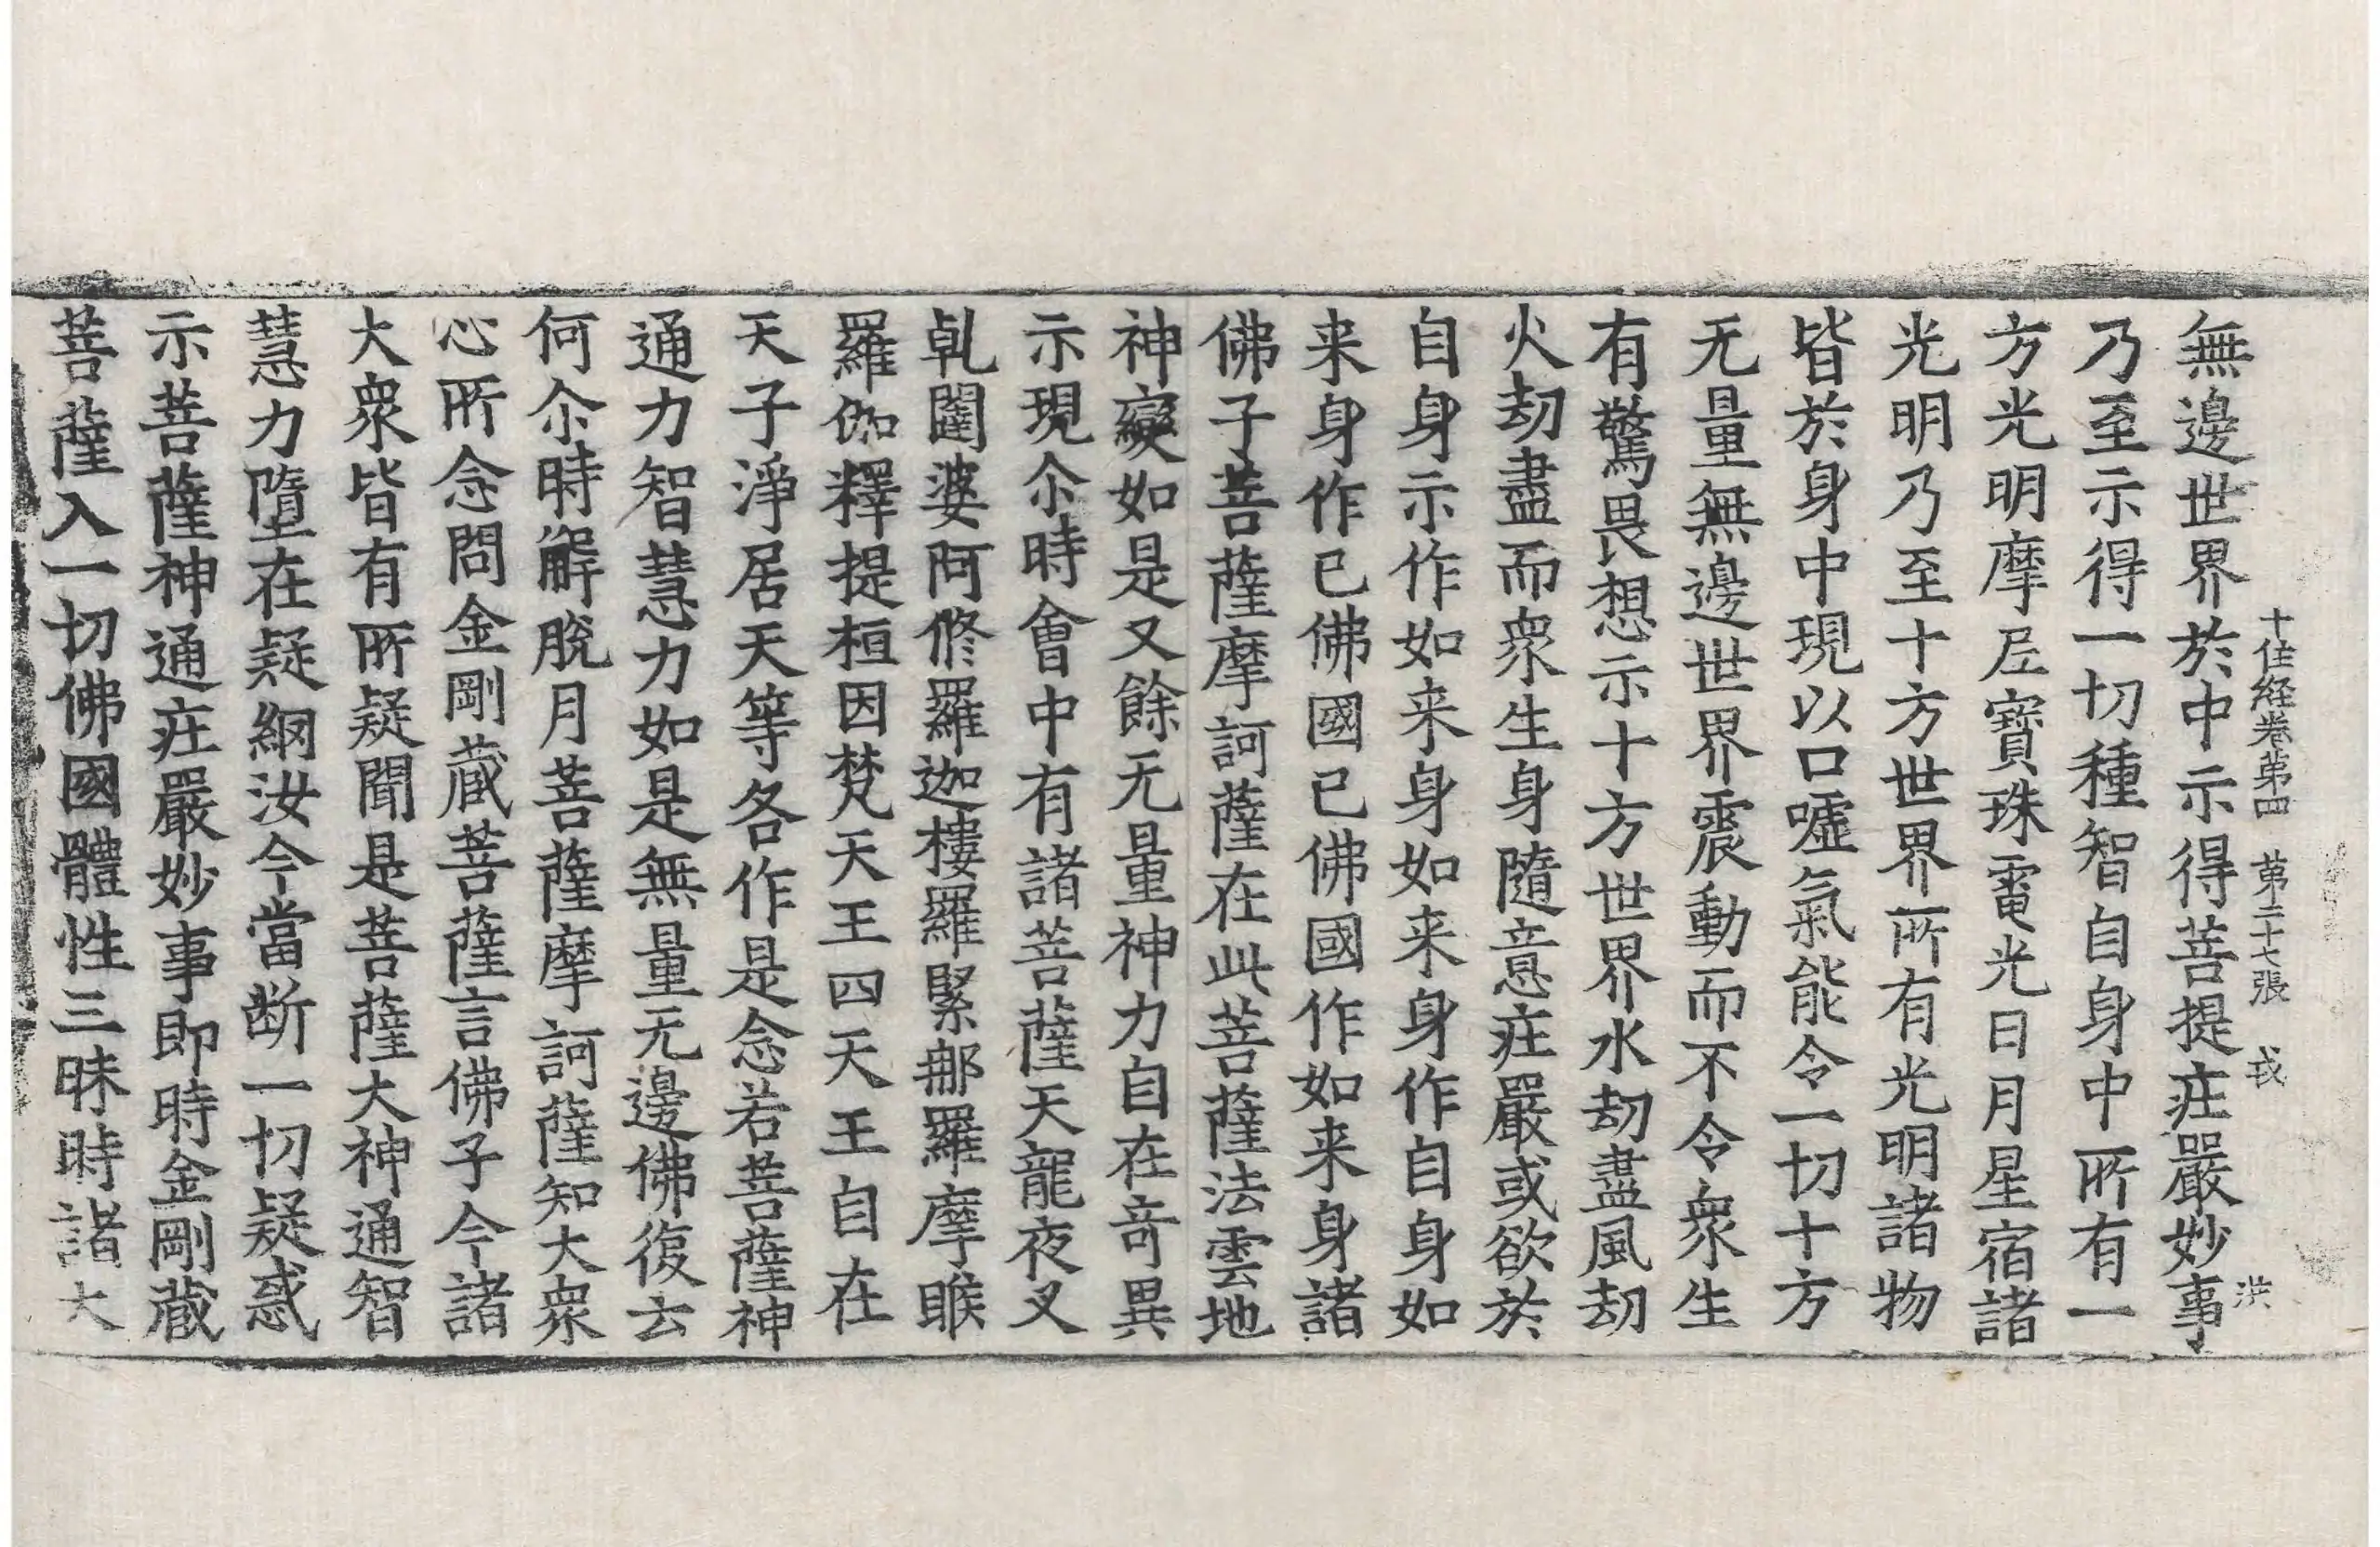 十住経卷苐四　苐二十七張　戎
洪
無邊世界於中示得菩提庄嚴妙事
乃至示得一切種智自身中所有一
方光明摩尼寶珠電光日月星宿諸
光明乃至十方世界所有光明諸物
皆於身中現以口噓氣能令一切十方
无量無邊世界震動而不令衆生
有驚畏想示十方世界水劫盡風劫
火劫盡而衆生身隨意庄嚴或欲於
自身示作如来身如来身作自身如
来身作已佛國已佛國作如来身諸
佛子菩薩摩訶薩在此菩薩法雲地
神變如是又餘无量神力自在竒異
示現尒時會中有諸菩薩天龍夜叉
乹闥婆阿修羅迦樓羅緊那羅摩睺
羅伽釋提桓因梵天王四天王自在
天子淨居天等各作是念若菩薩神
通力智慧力如是無量无邊佛復云
何尒時解脫月菩薩摩訶薩知大衆
心所念問金剛蔵菩薩言佛子今諸
大衆皆有所疑聞是菩薩大神通智
慧力墮在疑網汝今當断一切疑惑
示菩薩神通庄嚴妙事即時金剛蔵
菩薩入一切佛國體性三昧時諸大